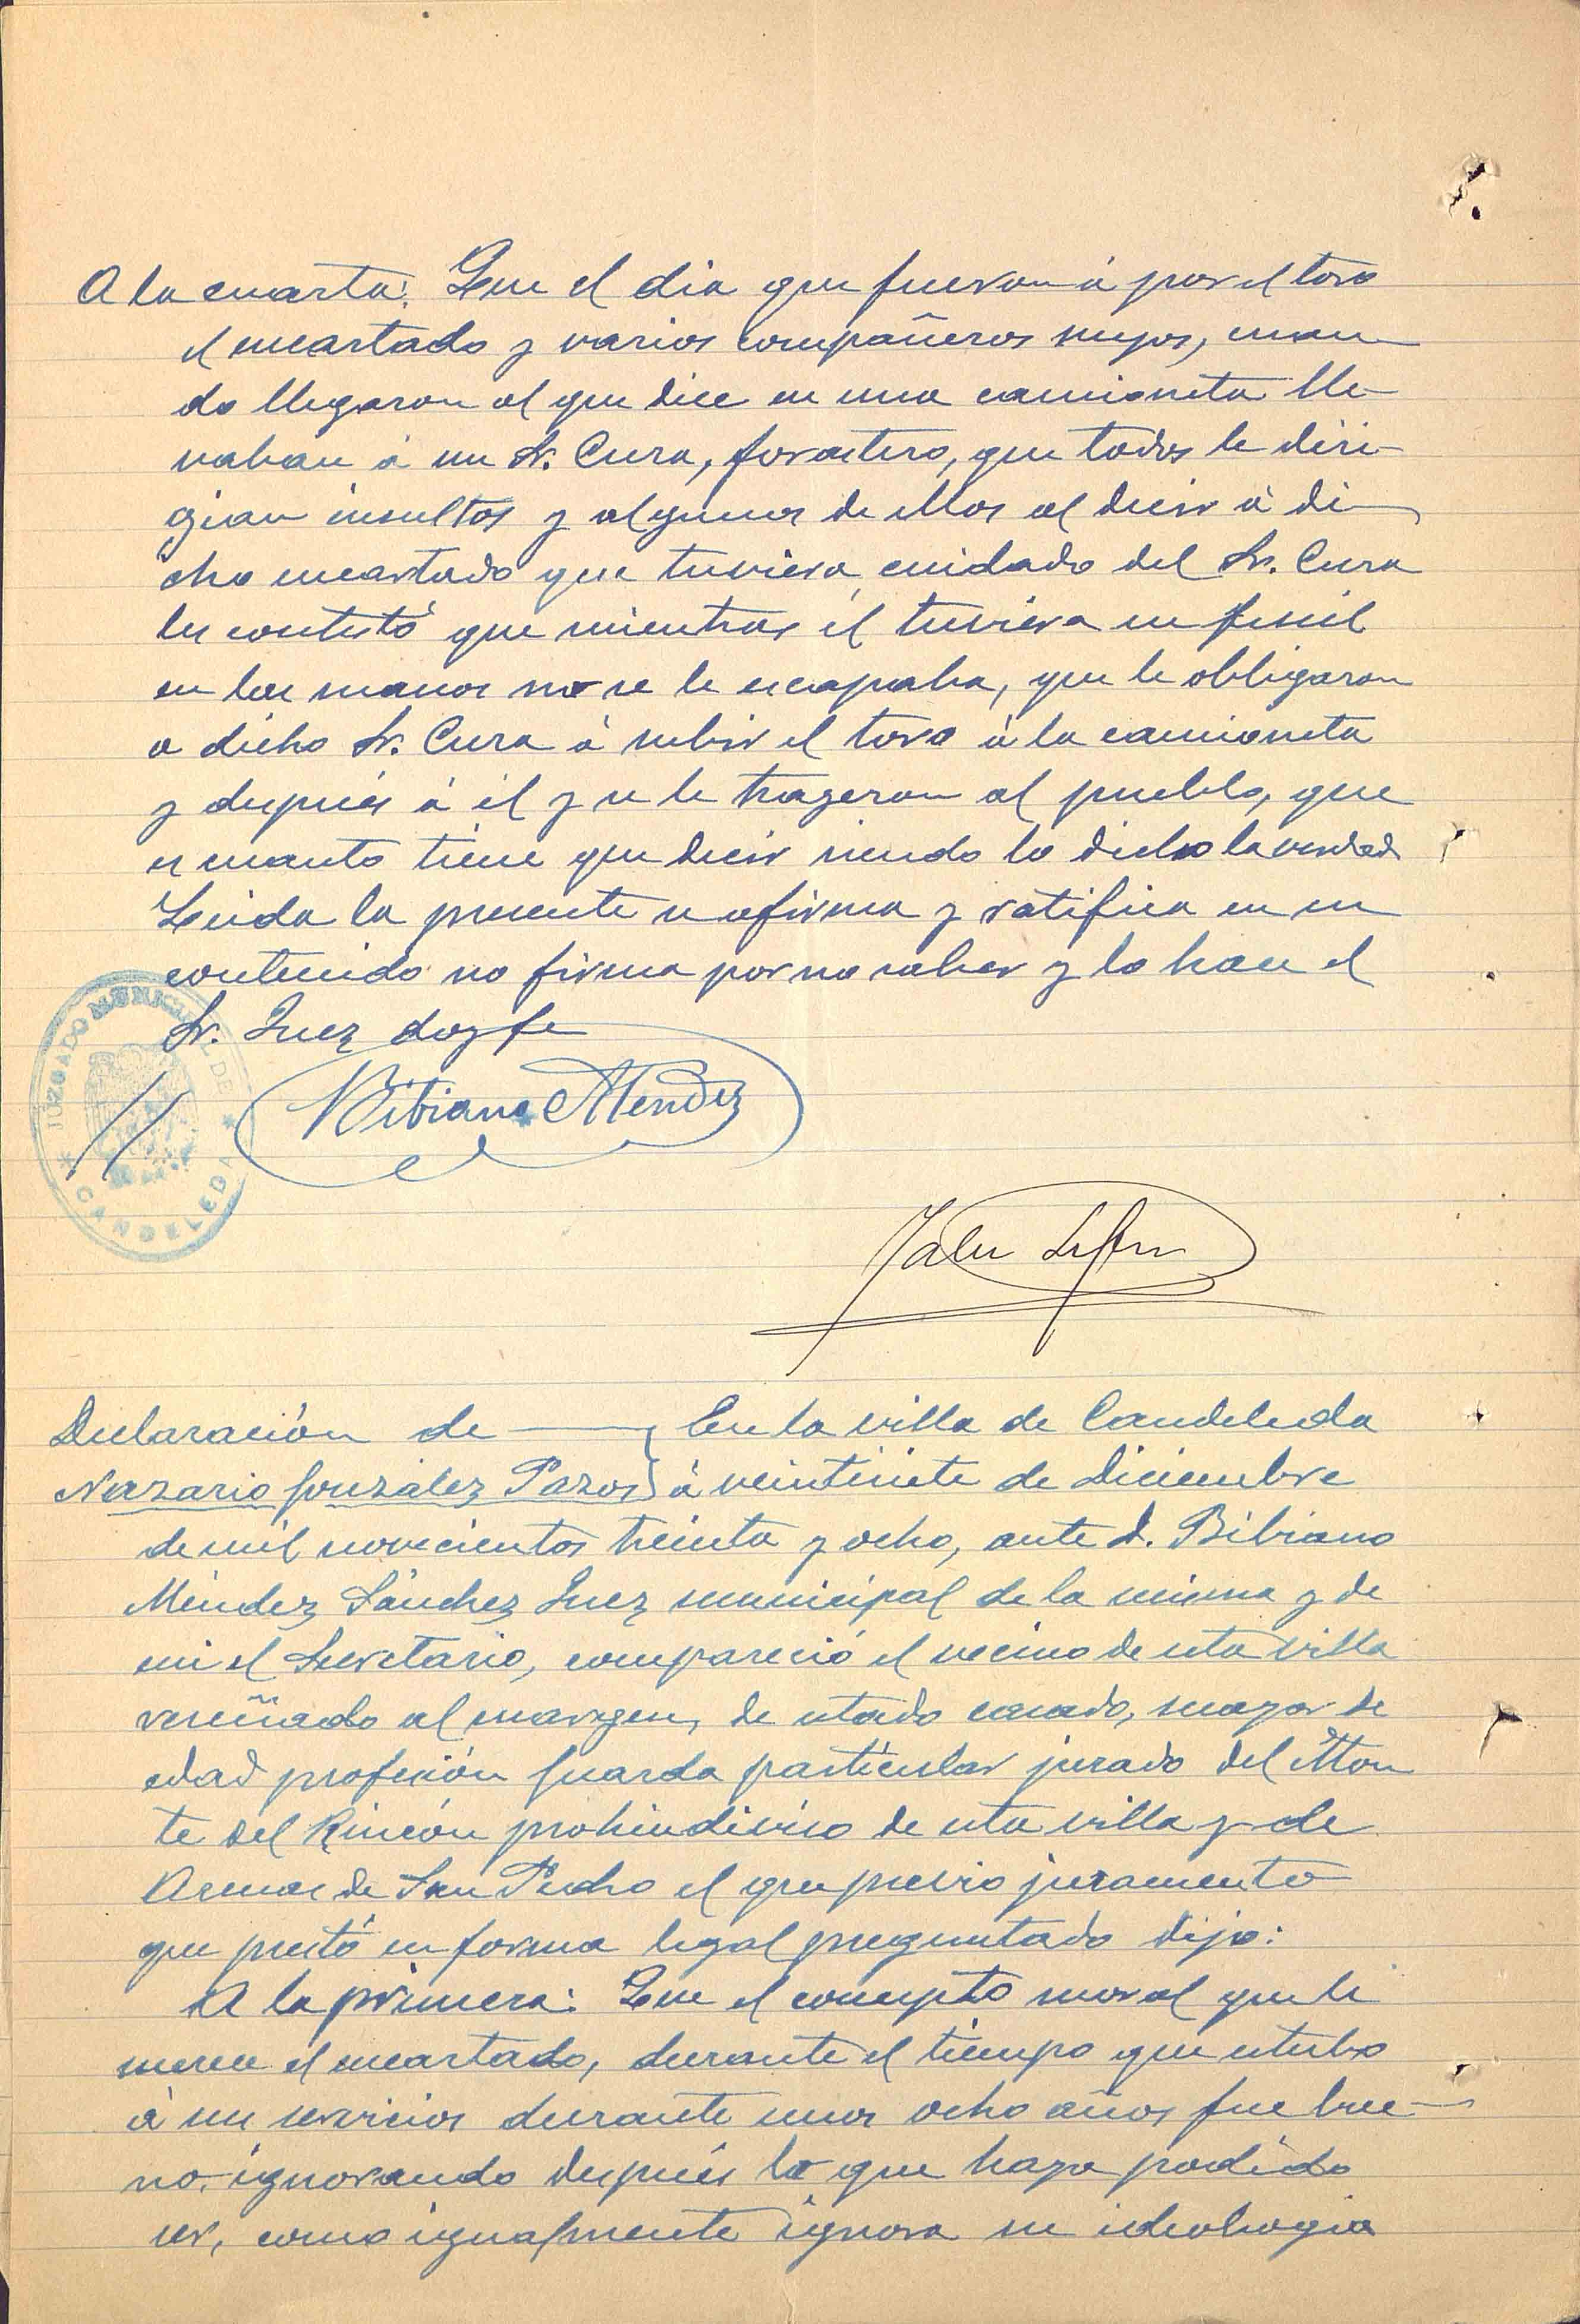 A la cuarta: Que el dia que fueron á por el toro
el encartado y varios compañeros suyos, cuan
do llegaron al que dice en una camioneta lle-
vaban á un Sr. Cura, forastero, que todos le diri-
gian insultos y algunos de ellos al decir á di-
cho encartado que tuviera cuidado del Sr. Cura
les contestó que mientras él tuviera un fusil
en las manos no se le escapaba, que le obligaron
a dicho Sr. Cura á subir el toro á la camioneta
y después á él y se le trageron al pueblo, que
es cuanto tiene que decir siendo lo dicho la verdad
Leida la presente se afirma y ratifica en su
contenido no firma por no saber y lo hace el
Sr. Juez doy fe
JUZGADO MUNICIPAL DE
* CANDELEDA *
Bibiano Mendez
Declaración de — En la villa de Candeleda
Nazario González Pazos á veintisiete de Diciembre
de mil novecientos treinta y ocho, ante D. Bibiano
Méndez Sánchez Juez municipal de la misma y de
mi el Secretario, compareció el vecino de esta villa
reseñado al margen, de estado casado, mayor de
edad profesión guarda particular jurado del Mon
te del Rincón prohindiviso de esta villa y de
Arenas de San Pedro el que previo juramento
que prestó en forma legal preguntado dijo:
A la primera: Que el concepto moral que le
merece el encartado, durante el tiempo que estubo
á su servicios durante unos ocho años fue bue-
no, ignorando después lo que haya podido
ser, como igualmente ignora su ideologia